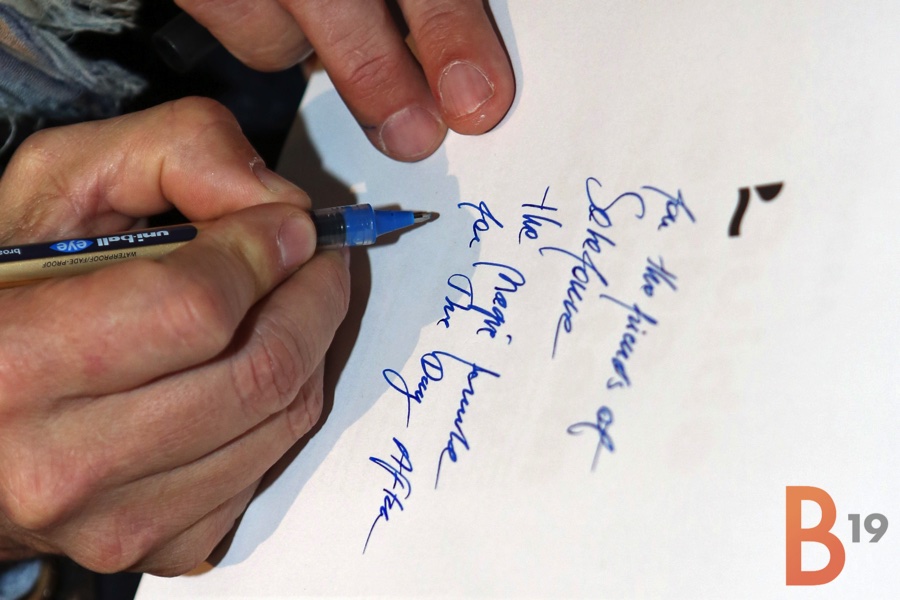 for the friends of
the
for Magic formule
The Day After
uni-ball eye
WATERPROOF/FADE-PROOF
B19